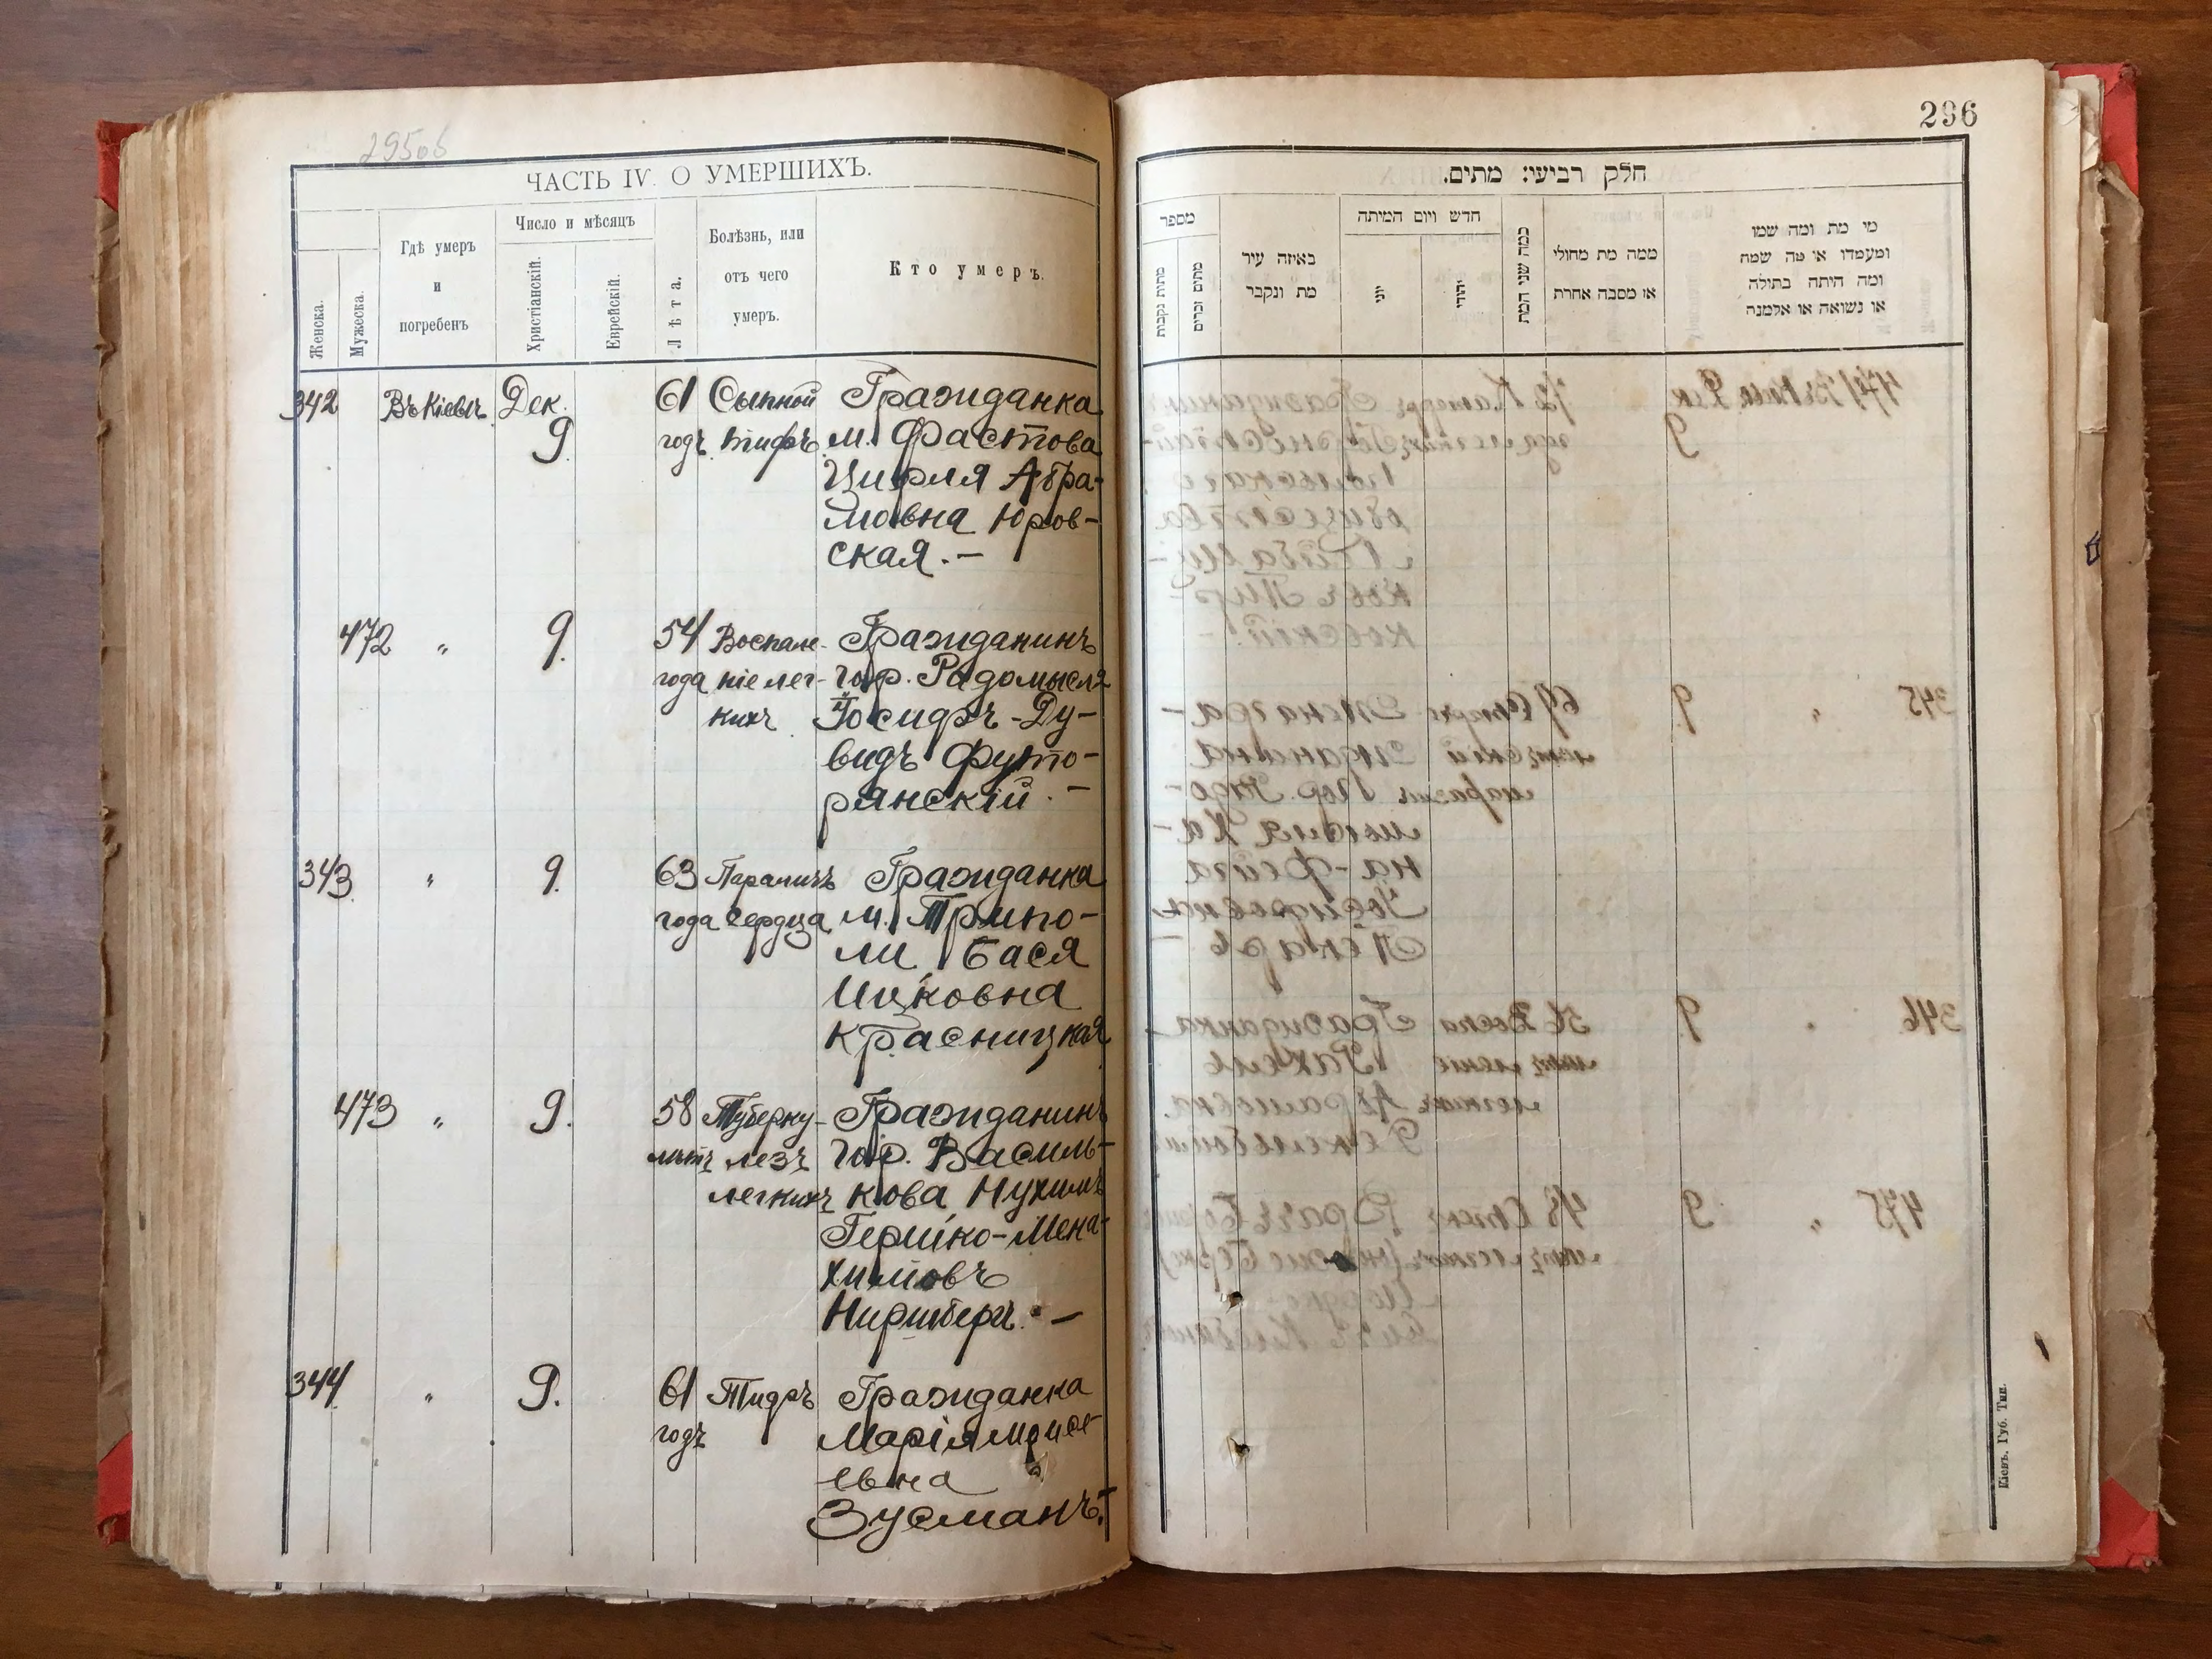 295об
ЧАСТЬ IV. О УМЕРШИХЪ.
Женска.
Мужеска.
Гдѣ умеръ
и
погребенъ
Число и мѣсяцъ
Христіанскій.
Еврейскій.
Лѣта.
Болѣзнь, или
отъ чего
умеръ.
Кто умеръ.
342 Въ Кіевѣ Дек. 61 Сыпной Гражданка
9 годъ тифъ м. Фастова
Цирля Абра-
мовна Юров-
ская. —
472 " 9. 54 Воспале- Гражданинъ
года ніе лег- гор. Радомысля
кихъ Іосифъ-Ду-
видъ Футо-
рянскій. —
343 " 9. 63 Параличъ Гражданка
года сердца м. Трипо-
ли Бася
Ицковна
Красницкая
473 " 9. 58 Туберку- Гражданинъ
лѣтъ лезъ гор. Василь-
легкихъ кова Нухимъ
Гершко-Мена-
химовъ
Ниришберг. —
344 " 9. 61 Тифъ Гражданка
годъ Марія Моисе-
евна
Зусманъ. —
296
חלק רביעי: מתים.
מספר
מתות נקבות
מתים זכרים
באיזה עיר
מת ונקבר
חדש ויום המיתה
יוני
יהודי
כמה שני המת
ממה מת מחולי
או מסבה אחרת
מי מת ומה שמו
ומעמדו או מה שמה
ומה היתה בתולה
או נשואה או אלמנה
Кіевъ. Губ. Тип.